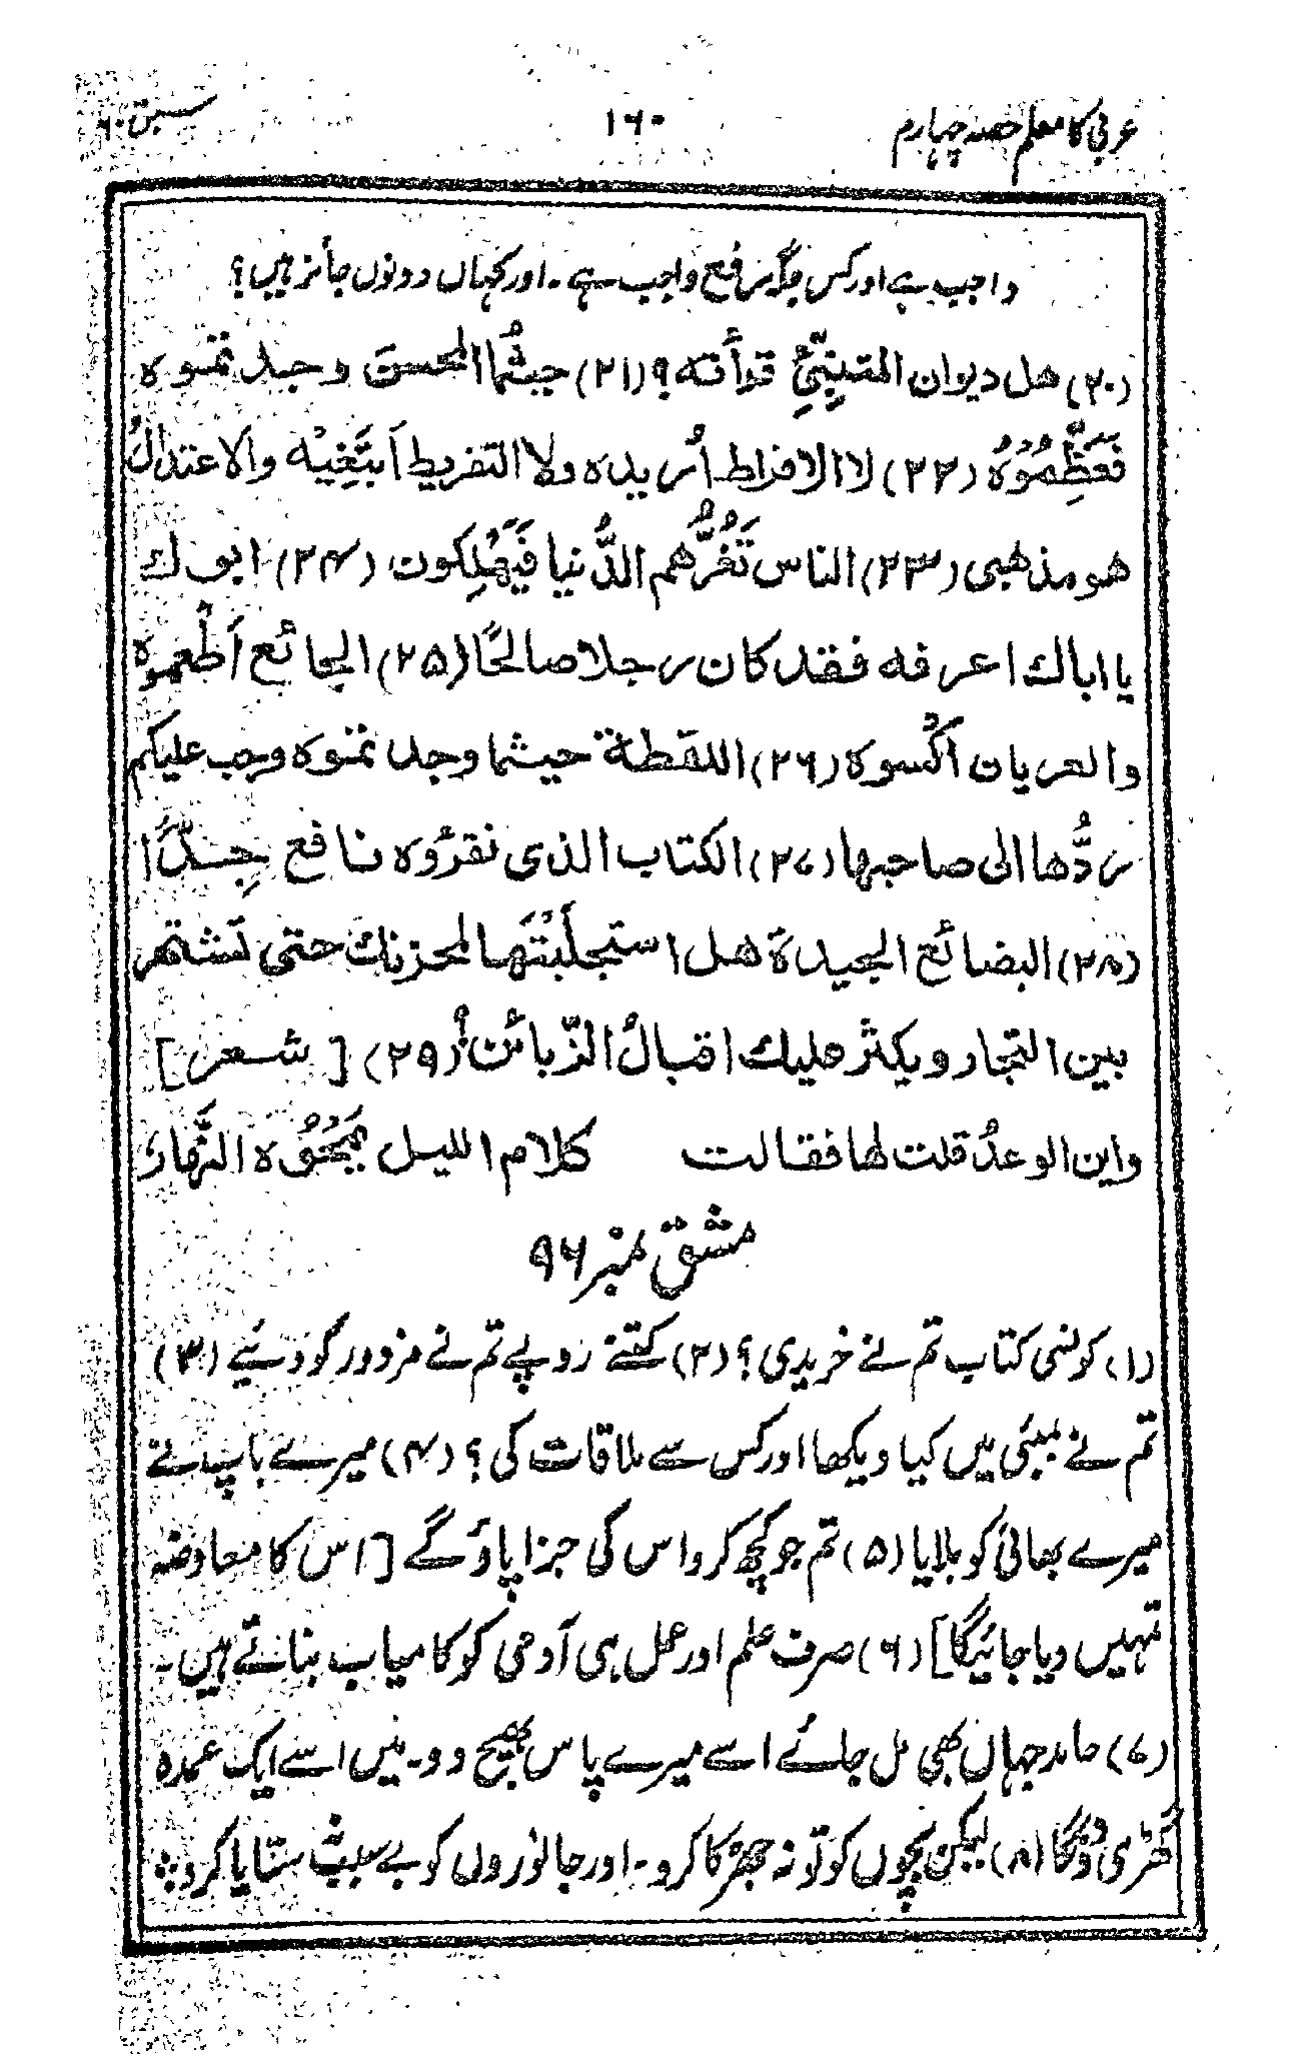 عربی کا معلم حصہ چہارم ۱۶۰ سبق ۶۰
واجب ہے اور کس جگہ رفع واجب ہے۔ اور کہاں دونوں جائز ہیں؟
(۲۰) هل ديوان المتنبّئِ قرأتَه؟ (۲۱) حيثُما المحسنَ وجد تموه
فَعَظِّمُوْهُ (۲۲) لا الافراط اُريده ولا التفريط اَبتَغِيْه والاعتدالُ
هو مذهبی (۲۳) الناس تَغُرُّهم الدُّنيا فَيَهْلِكون (۲۴) ابوك
يا اباك اعرفه فقد كان رجلا صالحًا (۲۵) الجائع اَطْعموه
والعريان اُكْسوه (۲۶) اللقطة حيثما وجد تموه وجب عليكم
ردُّها الى صاحبها (۲۷) الكتاب الذى نقرؤه نافع جِدًّا
(۲۸) البضائع الجيدة هل استجلَبْتَها لمخزنك حتى تشتهر
بين التجار ويكثرَ عليك اقبالُ الزّبائن؟ (۲۹) [شعر]
واين الوعدُ قلت لها فقالت كلام الليل يَمْحُوْه النَّهار
مشق نمبر ۹۶
(۱) کونسی کتاب تم نے خریدی؟ (۲) کتنے روپے تم نے مزدور کو دئیے (۳)
تم نے بمبئی میں کیا دیکھا اور کس سے ملاقات کی؟ (۴) میرے باپ نے
میرے بھائی کو بلایا (۵) تم جو کچھ کرو اس کی جزا پاؤ گے [اس کا معاوضہ
تمہیں دیا جائیگا] (۶) صرف علم اور عمل ہی آدمی کو کامیاب بناتے ہیں۔
(۷) حامد جہاں بھی مل جائے اسے میرے پاس بھیج دو۔ میں اسے ایک عمدہ
گھڑی دونگا (۸) لیکن بچوں کو تو نہ جھڑکا کرو۔ اور جانوروں کو بے سبب ستایا کرو